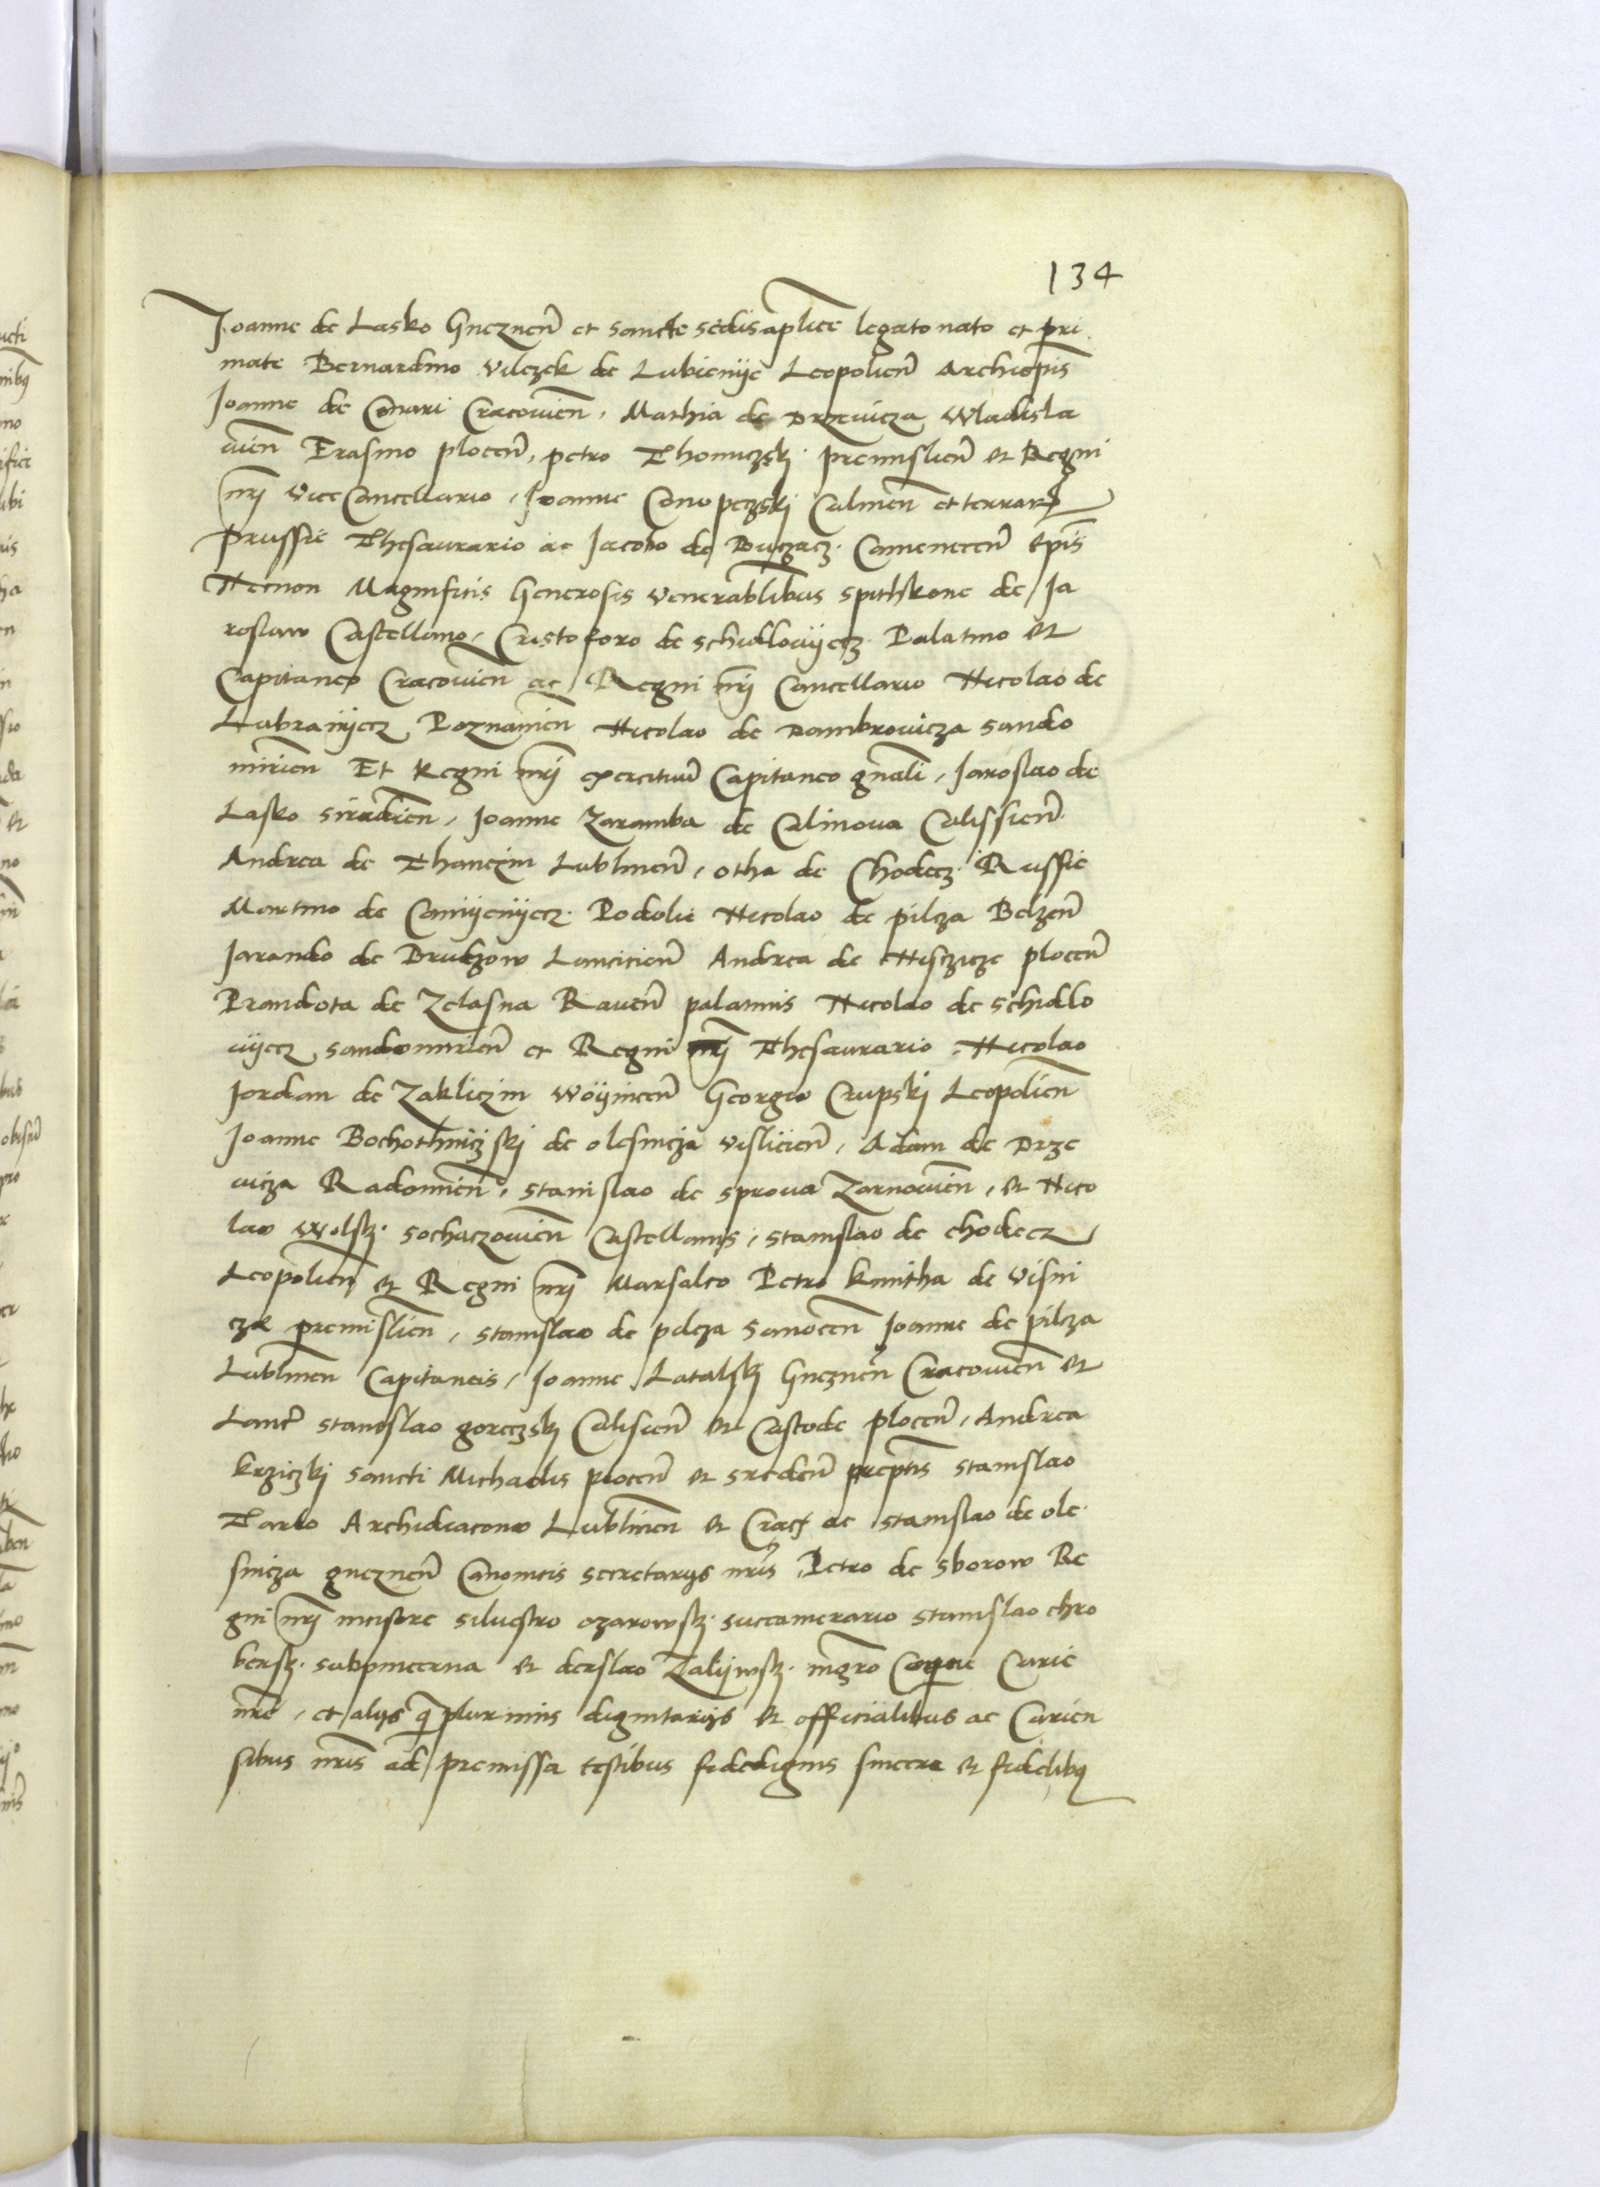 134
Joanne de Lasko Gneznen̄ et sancte sedis aplice legato nato et pri
mate Bernardino Vilczek de Lubienije Leopolien̄ Archiepis
Joanne de Conari Cracovien̄, Mathia de Drzevicza Wladisla
vien̄ Erasmo plocen̄, petro Thomiczskj premislien̄ et Regni
nrj vice Cancellario, Joanne Conopeczskj Culmen̄ et terrar
prussie Thesaurario ac Jacobo de Buczacz Camenecen̄ epis
Necnon Magnificis Generosis venerablibus spithkone de Ja
roslaw Castellano, Cristoforo de Schidlovijecz Palatino et
Capitaneo Cracovien̄ ac Regni nrj Cancellario Nicolao de
Lubranijecz Poznanien̄ Nicolao de Dambrovicza sando
mirien̄ Et Regni nrj exercituu Capitaneo gnali, Jaroslao de
Lasko siradien̄, Joanne Zaramba de Calinova Calissien̄
Andrea de Thanczin Lublinen̄, otha de Chodecz Russie
Martino de Camijenijecz Podolie Nicolao de pilcza Belzen̄
Jarando de Brudzow Lancicien̄ Andrea de Nisczicze plocen̄
Prandota de Zelasna Raven̄ palatinis Nicolao de schidlo
vijecz sandomirien̄ et Regni nrj Thesaurario, Nicolao
Jordan de Zakliczin Woijnicen̄ Georgio Crupskj Leopolien̄
Joanne Bochothniczskj de olesnicza vislicien̄, Adam de Drze
vicza Radomien̄, stanislao de sprova Zarnovien̄, et Nico
lao Wolsk sochaczovien̄ Castellanis, stanislao de chodecz
Leopolien̄ et Regni nrj Marsalco Petro kmitha de visni
cze premislien̄, stanislao de pilcza Sanocen̄ Joanne de pilcza
Lublinen̄ Capitaneis, Joanne Latalskj Gneznen̄ Cracovien̄ et
Lanc stanislao goreczskj Calisien̄ et Custode plocen̄, Andrea
krziczkj sancti Michaelis plocen̄ et sreden̄ preptis stanislao
Tarlo Archidiacono Lublinen̄ et Crac ac stanislao de ole
snicza gneznen̄ Canonicis secretarijs nris Petro de sborow Re
gni nrj incisore silvestro ozarowsk succamerario stanislao chro
bersk subpincerna et derslao Zalijwsk mgro Coquine Curie
nre, et alijs q plurimis dignitarijs et officialibus ac Curien
sibus nris ad premissa testibus fidedignis sincere et fidelibq